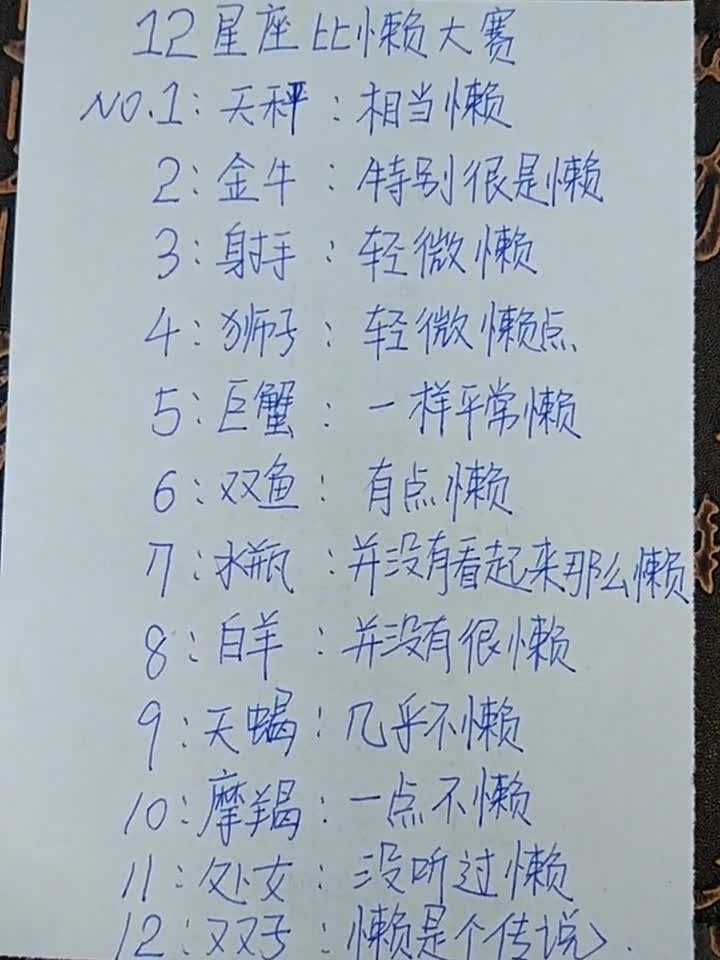 12星座比懒大赛
NO.1：天秤：相当懒
2：金牛：特别很是懒
3：射手：轻微懒
4：狮子：轻微懒点
5：巨蟹：一样平常懒
6：双鱼：有点懒
7：水瓶：并没有看起来那么懒
8：白羊：并没有很懒
9：天蝎：几乎不懒
10：摩羯：一点不懒
11：处女：没听过懒
12：双子：懒是个传说.